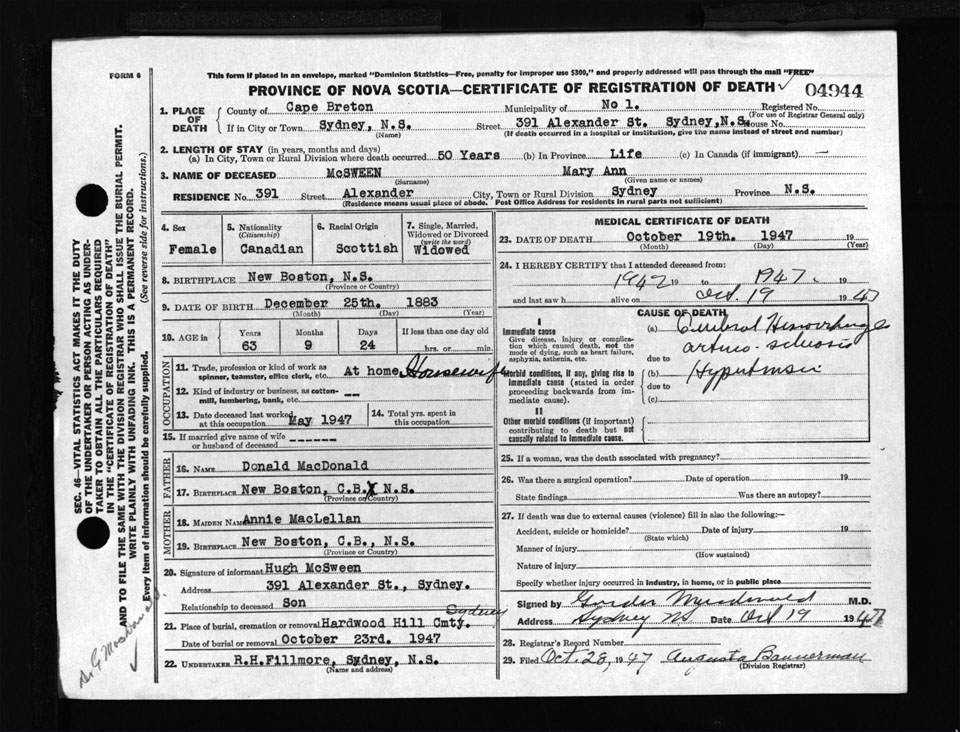 FORM 6
This form if placed in an envelope, marked "Dominion Statistics—Free, penalty for improper use $300," and properly addressed will pass through the mail "FREE"
PROVINCE OF NOVA SCOTIA—CERTIFICATE OF REGISTRATION OF DEATH ✓ 04944
1. PLACE OF DEATH County of Cape Breton Municipality of No 1. Registered No.
(For use of Registrar General only)
If in City or Town Sydney, N.S. Street 391 Alexander St. Sydney,N.S. House No.
(Name) (If death occurred in a hospital or institution, give the name instead of street and number)
2. LENGTH OF STAY (in years, months and days)
(a) In City, Town or Rural Division where death occurred 50 Years (b) In Province Life (c) In Canada (if immigrant) —
3. NAME OF DECEASED McSWEEN Mary Ann
(Surname) (Given name or names)
RESIDENCE No. 391 Street Alexander City, Town or Rural Division Sydney Province N.S.
(Residence means usual place of abode. Post Office Address for residents in rural parts not sufficient)
4. Sex Female
5. Nationality (Citizenship) Canadian
6. Racial Origin Scottish
7. Single, Married, Widowed or Divorced (write the word) Widowed
8. BIRTHPLACE New Boston, N.S.
(Province or Country)
9. DATE OF BIRTH December 25th. 1883
(Month) (Day) (Year)
10. AGE in Years Months Days If less than one day old
63 9 24 hrs. or min.
OCCUPATION
11. Trade, profession or kind of work as spinner, teamster, office clerk, etc. At home Housewife
12. Kind of industry or business, as cotton-mill, lumbering, bank, etc. --
13. Date deceased last worked at this occupation May 1947
14. Total yrs. spent in this occupation
15. If married give name of wife or husband of deceased ------
FATHER
16. NAME Donald MacDonald
17. BIRTHPLACE New Boston, C.B. N.S.
(Province or Country)
MOTHER
18. MAIDEN NAME Annie MacLellan
19. BIRTHPLACE New Boston, C.B., N.S.
(Province or Country)
20. Signature of informant Hugh McSween
Address 391 Alexander St., Sydney.
Relationship to deceased Son
Sydney
21. Place of burial, cremation or removal Hardwood Hill Cmty.
Date of burial or removal October 23rd. 1947
22. UNDERTAKER R.H.Fillmore, Sydney, N.S.
(Name and address)
MEDICAL CERTIFICATE OF DEATH
23. DATE OF DEATH October 19th. 1947 19
(Month) (Day) (Year)
24. I HEREBY CERTIFY that I attended deceased from:
1942 19 to 1947. 19
and last saw h alive on Oct. 19 1947
CAUSE OF DEATH
I
Immediate cause
Give disease, injury or complication which caused death, not the mode of dying, such as heart failure, asphyxia, asthenia, etc.
(a) Cerebral Hemorrhage
arterio-sclerosis
due to
Morbid conditions, if any, giving rise to immediate cause (stated in order proceeding backwards from immediate cause).
(b) Hypertension
due to
(c)
II
Other morbid conditions (if important) contributing to death but not causally related to immediate cause.
25. If a woman, was the death associated with pregnancy?
26. Was there a surgical operation? Date of operation 19
State findings Was there an autopsy?
27. If death was due to external causes (violence) fill in also the following:—
Accident, suicide or homicide? Date of injury 19
(State which)
Manner of injury
(How sustained)
Nature of injury
Specify whether injury occurred in industry, in home, or in public place
Signed by Gordon Macdonald M.D.
Address Sydney NS Date Oct 19 1947
28. Registrar's Record Number
29. Filed Oct. 28, 1947 Augusta Bannerman
(Division Registrar)
SEC. 46—VITAL STATISTICS ACT MAKES IT THE DUTY
OF THE UNDERTAKER OR PERSON ACTING AS UNDER-
TAKER TO OBTAIN ALL THE PARTICULARS REQUIRED
IN THE "CERTIFICATE OF REGISTRATION OF DEATH"
AND TO FILE THE SAME WITH THE DIVISION REGISTRAR WHO SHALL ISSUE THE BURIAL PERMIT.
WRITE PLAINLY WITH UNFADING INK. THIS IS A PERMANENT RECORD.
Every item of information should be carefully supplied. (See reverse side for instructions.)
Dr. G MacDonald
✓